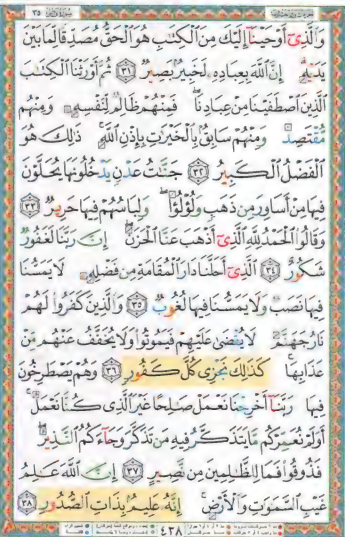 وَالَّذِىٓ أَوْحَيْنَآ إِلَيْكَ مِنَ الْكِتَٰبِ هُوَ الْحَقُّ مُصَدِّقًا لِّمَا بَيْنَ
يَدَيْهِ ۗ إِنَّ اللَّهَ بِعِبَادِهِۦ لَخَبِيرٌۢ بَصِيرٌ ﴿٣١﴾ ثُمَّ أَوْرَثْنَا الْكِتَٰبَ
الَّذِينَ اصْطَفَيْنَا مِنْ عِبَادِنَا ۖ فَمِنْهُمْ ظَالِمٌ لِّنَفْسِهِۦ وَمِنْهُم
مُّقْتَصِدٌ وَمِنْهُمْ سَابِقٌۢ بِالْخَيْرَٰتِ بِإِذْنِ اللَّهِ ۚ ذَٰلِكَ هُوَ
الْفَضْلُ الْكَبِيرُ ﴿٣٢﴾ جَنَّٰتُ عَدْنٍ يَدْخُلُونَهَا يُحَلَّوْنَ
فِيهَا مِنْ أَسَاوِرَ مِن ذَهَبٍ وَلُؤْلُؤًا ۖ وَلِبَاسُهُمْ فِيهَا حَرِيرٌ ﴿٣٣﴾
وَقَالُوا الْحَمْدُ لِلَّهِ الَّذِىٓ أَذْهَبَ عَنَّا الْحَزَنَ ۖ إِنَّ رَبَّنَا لَغَفُورٌ
شَكُورٌ ﴿٣٤﴾ الَّذِىٓ أَحَلَّنَا دَارَ الْمُقَامَةِ مِن فَضْلِهِۦ لَا يَمَسُّنَا
فِيهَا نَصَبٌ وَلَا يَمَسُّنَا فِيهَا لُغُوبٌ ﴿٣٥﴾ وَالَّذِينَ كَفَرُوا لَهُمْ
نَارُ جَهَنَّمَ لَا يُقْضَىٰ عَلَيْهِمْ فَيَمُوتُوا وَلَا يُخَفَّفُ عَنْهُم مِّنْ
عَذَابِهَا ۚ كَذَٰلِكَ نَجْزِى كُلَّ كَفُورٍ ﴿٣٦﴾ وَهُمْ يَصْطَرِخُونَ
فِيهَا رَبَّنَآ أَخْرِجْنَا نَعْمَلْ صَٰلِحًا غَيْرَ الَّذِى كُنَّا نَعْمَلُ ۚ
أَوَلَمْ نُعَمِّرْكُم مَّا يَتَذَكَّرُ فِيهِ مَن تَذَكَّرَ وَجَآءَكُمُ النَّذِيرُ ۖ
فَذُوقُوا فَمَا لِلظَّٰلِمِينَ مِن نَّصِيرٍ ﴿٣٧﴾ إِنَّ اللَّهَ عَٰلِمُ
غَيْبِ السَّمَٰوَٰتِ وَالْأَرْضِ ۚ إِنَّهُۥ عَلِيمٌۢ بِذَاتِ الصُّدُورِ ﴿٣٨﴾
٤٣٨